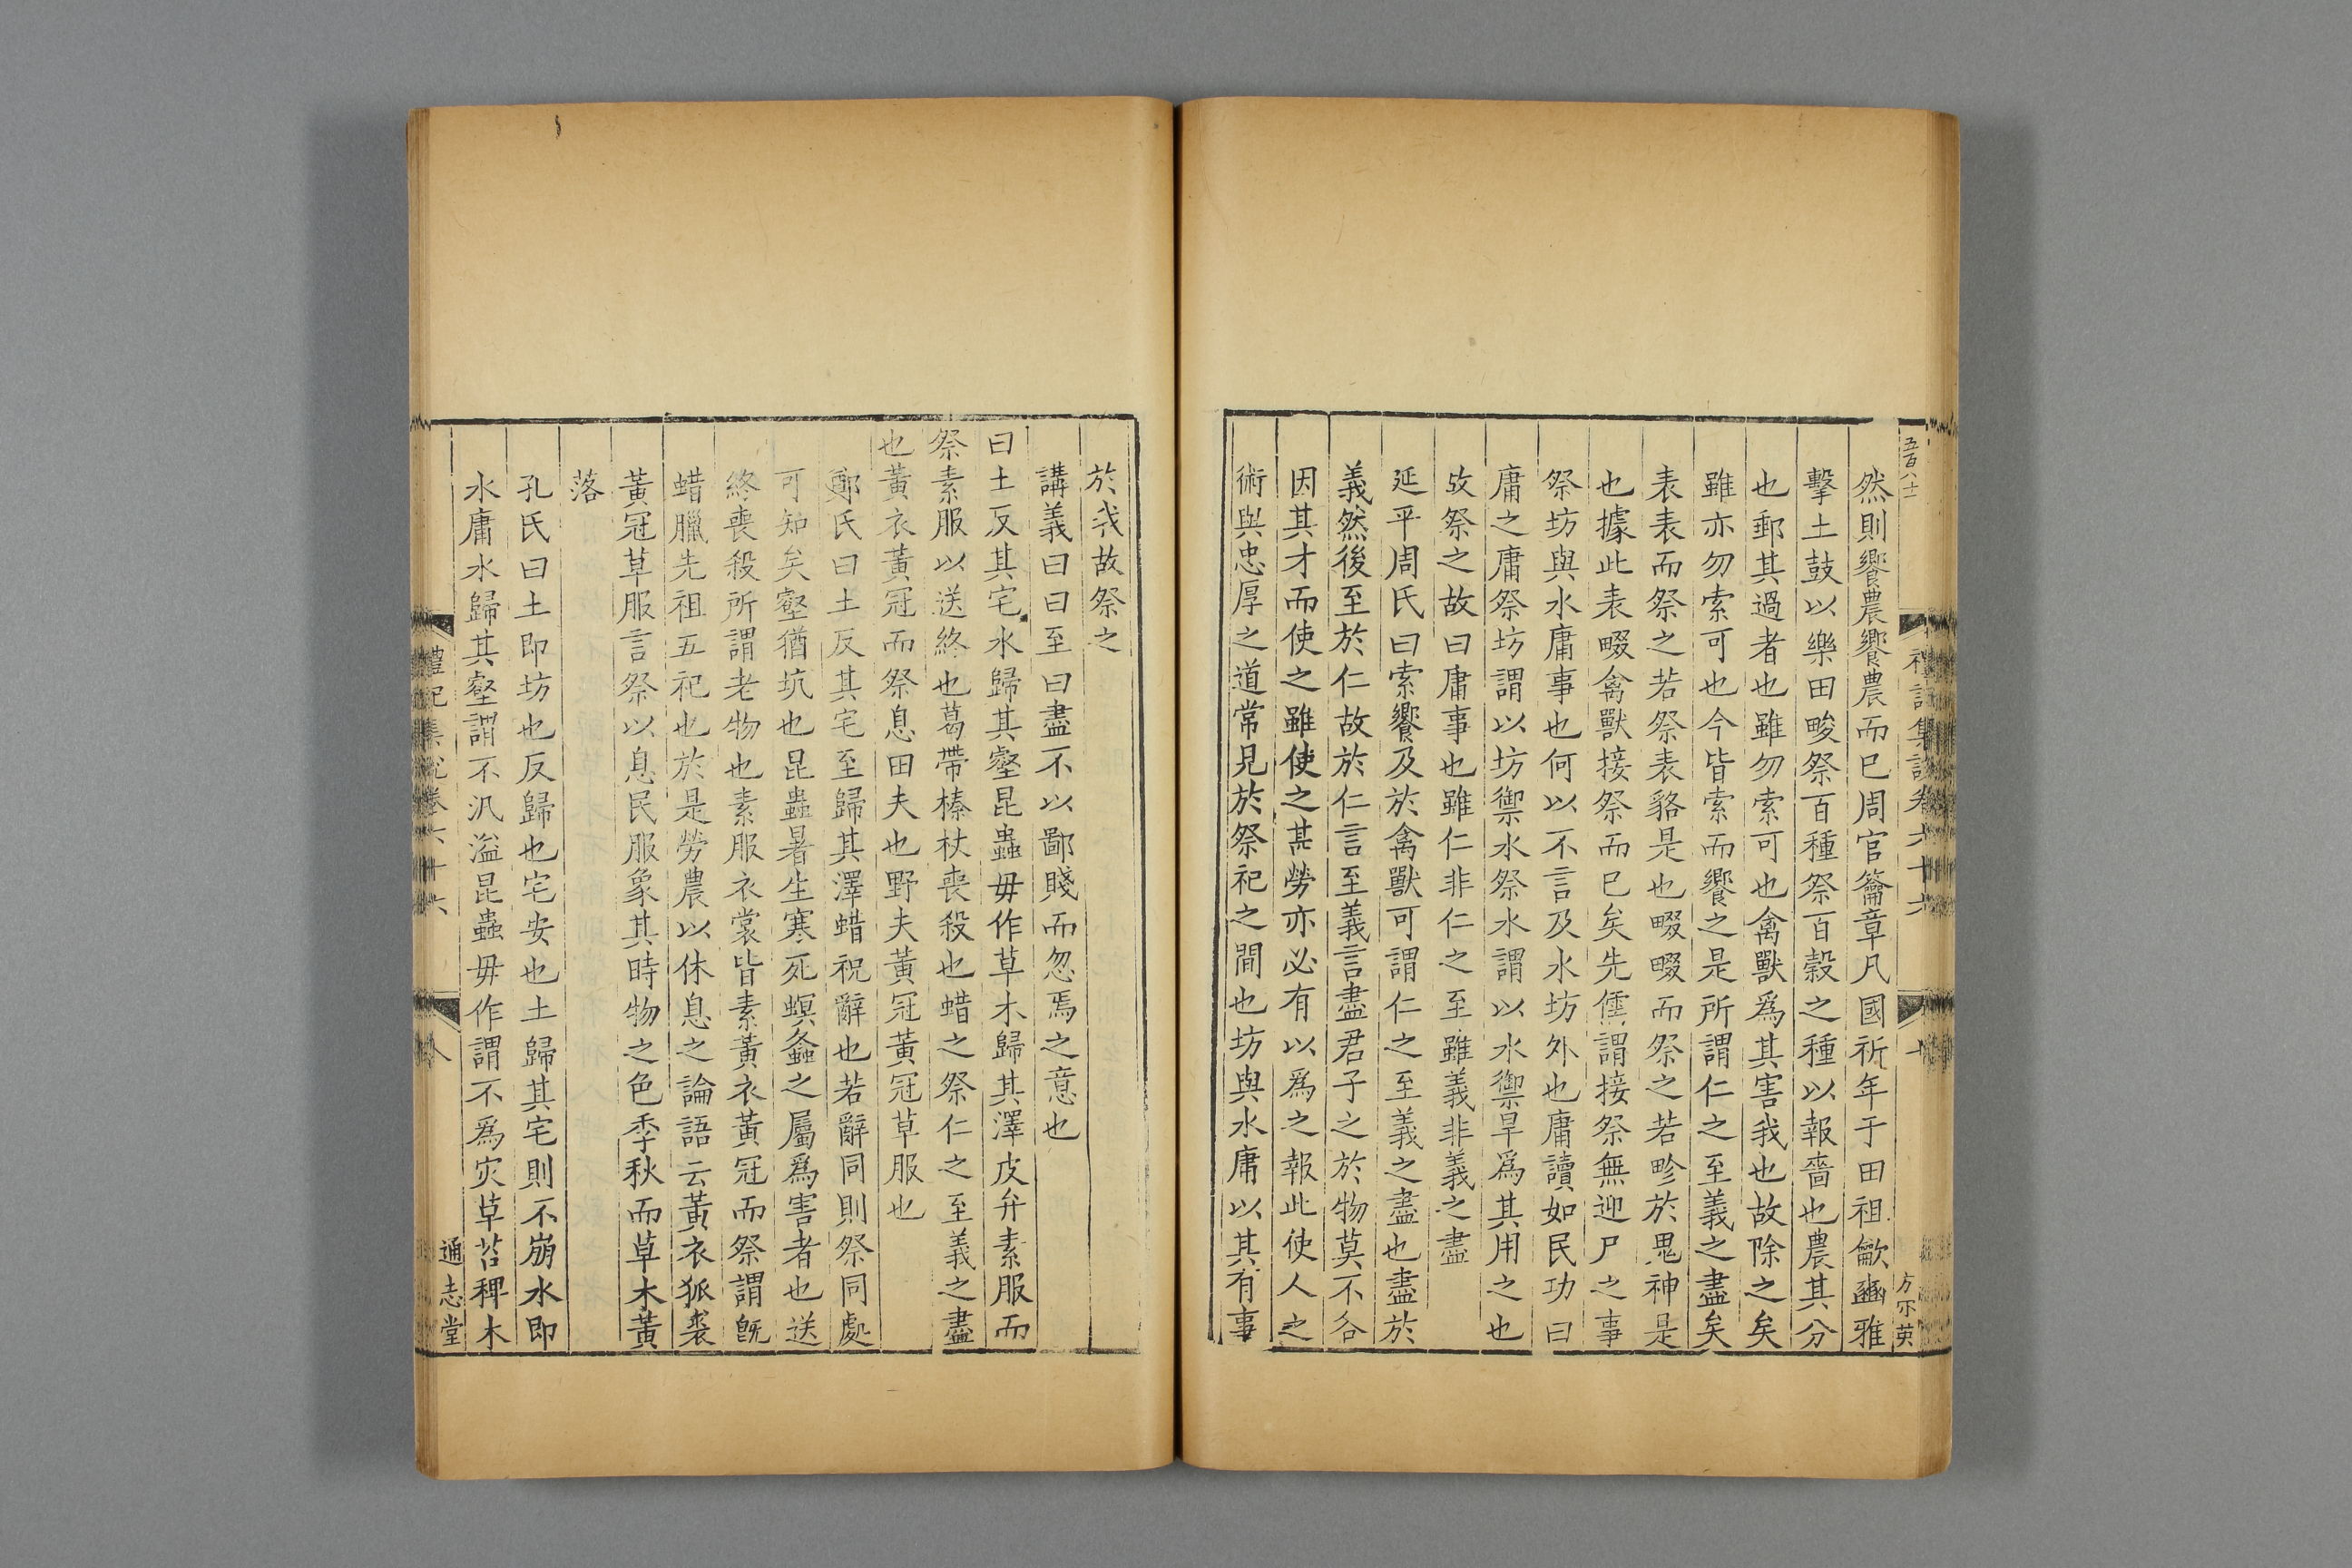 五百八十
禮記集說卷六十六
方不英
然則饗農饗農而巳周官籥章凡國祈年于田祖龡豳雅
擊土鼓以樂田畯祭百種祭百穀之種以報嗇也農其分
也郵其過者也雖勿索可也禽獸爲其害我也故除之矣
雖亦勿索可也今皆索而饗之是所謂仁之至義之盡矣
表表而祭之若祭表貉是也畷畷而祭之若畛於鬼神是
也據此表畷禽獸接祭而巳矣先儒謂接祭無迎尸之事
祭坊與水庸事也何以不言及水坊外也庸讀如民功曰
庸之庸祭坊謂以坊禦水祭水謂以水禦旱爲其用之也
故祭之故曰庸事也雖仁非仁之至雖義非義之盡
延平周氏曰索饗及於禽獸可謂仁之至義之盡也盡於
義然後至於仁故於仁言至義言盡君子之於物莫不各
因其才而使之雖使之甚勞亦必有以爲之報此使人之
術與忠厚之道常見於祭祀之間也坊與水庸以其有事
於我故祭之
講義曰曰至曰盡不以鄙賤而忽焉之意也
曰土反其宅水歸其壑昆蟲毋作草木歸其澤皮弁素服而
祭素服以送終也葛帶榛杖喪殺也蜡之祭仁之至義之盡
也黃衣黃冠而祭息田夫也野夫黃冠黃冠草服也
鄭氏曰土反其宅至歸其澤蜡祝辭也若辭同則祭同處
可知矣壑猶坑也昆蟲暑生寒死螟螽之屬爲害者也送
終喪殺所謂老物也素服衣裳皆素黃衣黃冠而祭謂旣
蜡臘先祖五祀也於是勞農以休息之論語云黃衣狐裘
黃冠草服言祭以息民服象其時物之色季秋而草木黃
落
孔氏曰土即坊也反歸也宅安也土歸其宅則不崩水即
水庸水歸其壑謂不汎溢昆蟲毋作謂不爲灾草苔稗木
禮記集說卷六十六
八
通志堂